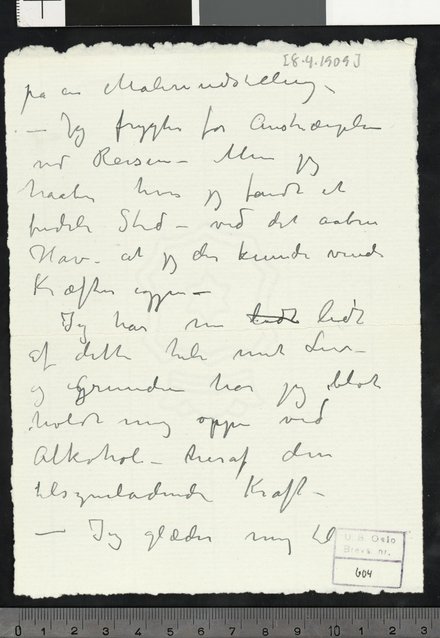 [8.4.1909]
paa en Maleriudstilling
— Jeg frygter for Anstrængelsen
ved Reisen – Men jeg
haaber hvis jeg fandt et
fredeligt Sted – ved det aabne
Hav – at jeg der kunde vinde
Kræfter igjen –
Jeg har nu ledt lidt
af dette hele mit Liv –
og Grunden har jeg blot
holdt mig oppe ved
Alkohol – heraf den
tilsyneladende Kraft –
— Jeg glæder mig til
U. B. Oslo
Brevs. nr.
604
0 1 2 3 4 5 6 7 8 9 10 11 12 13